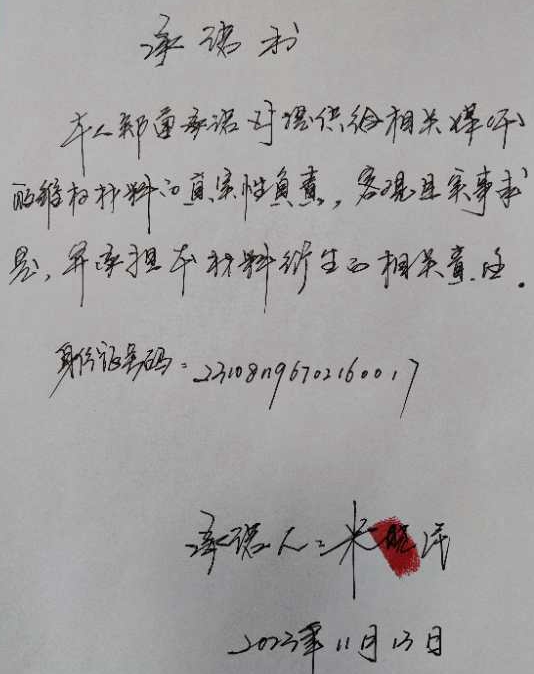 承诺书
本人郑重承诺对提供给相关媒体
的维权材料的真实性负责，客观且实事求
是，并承担本材料衍生的相关责任．
身份证号码：
承诺人：米晓民
2023年11月13日